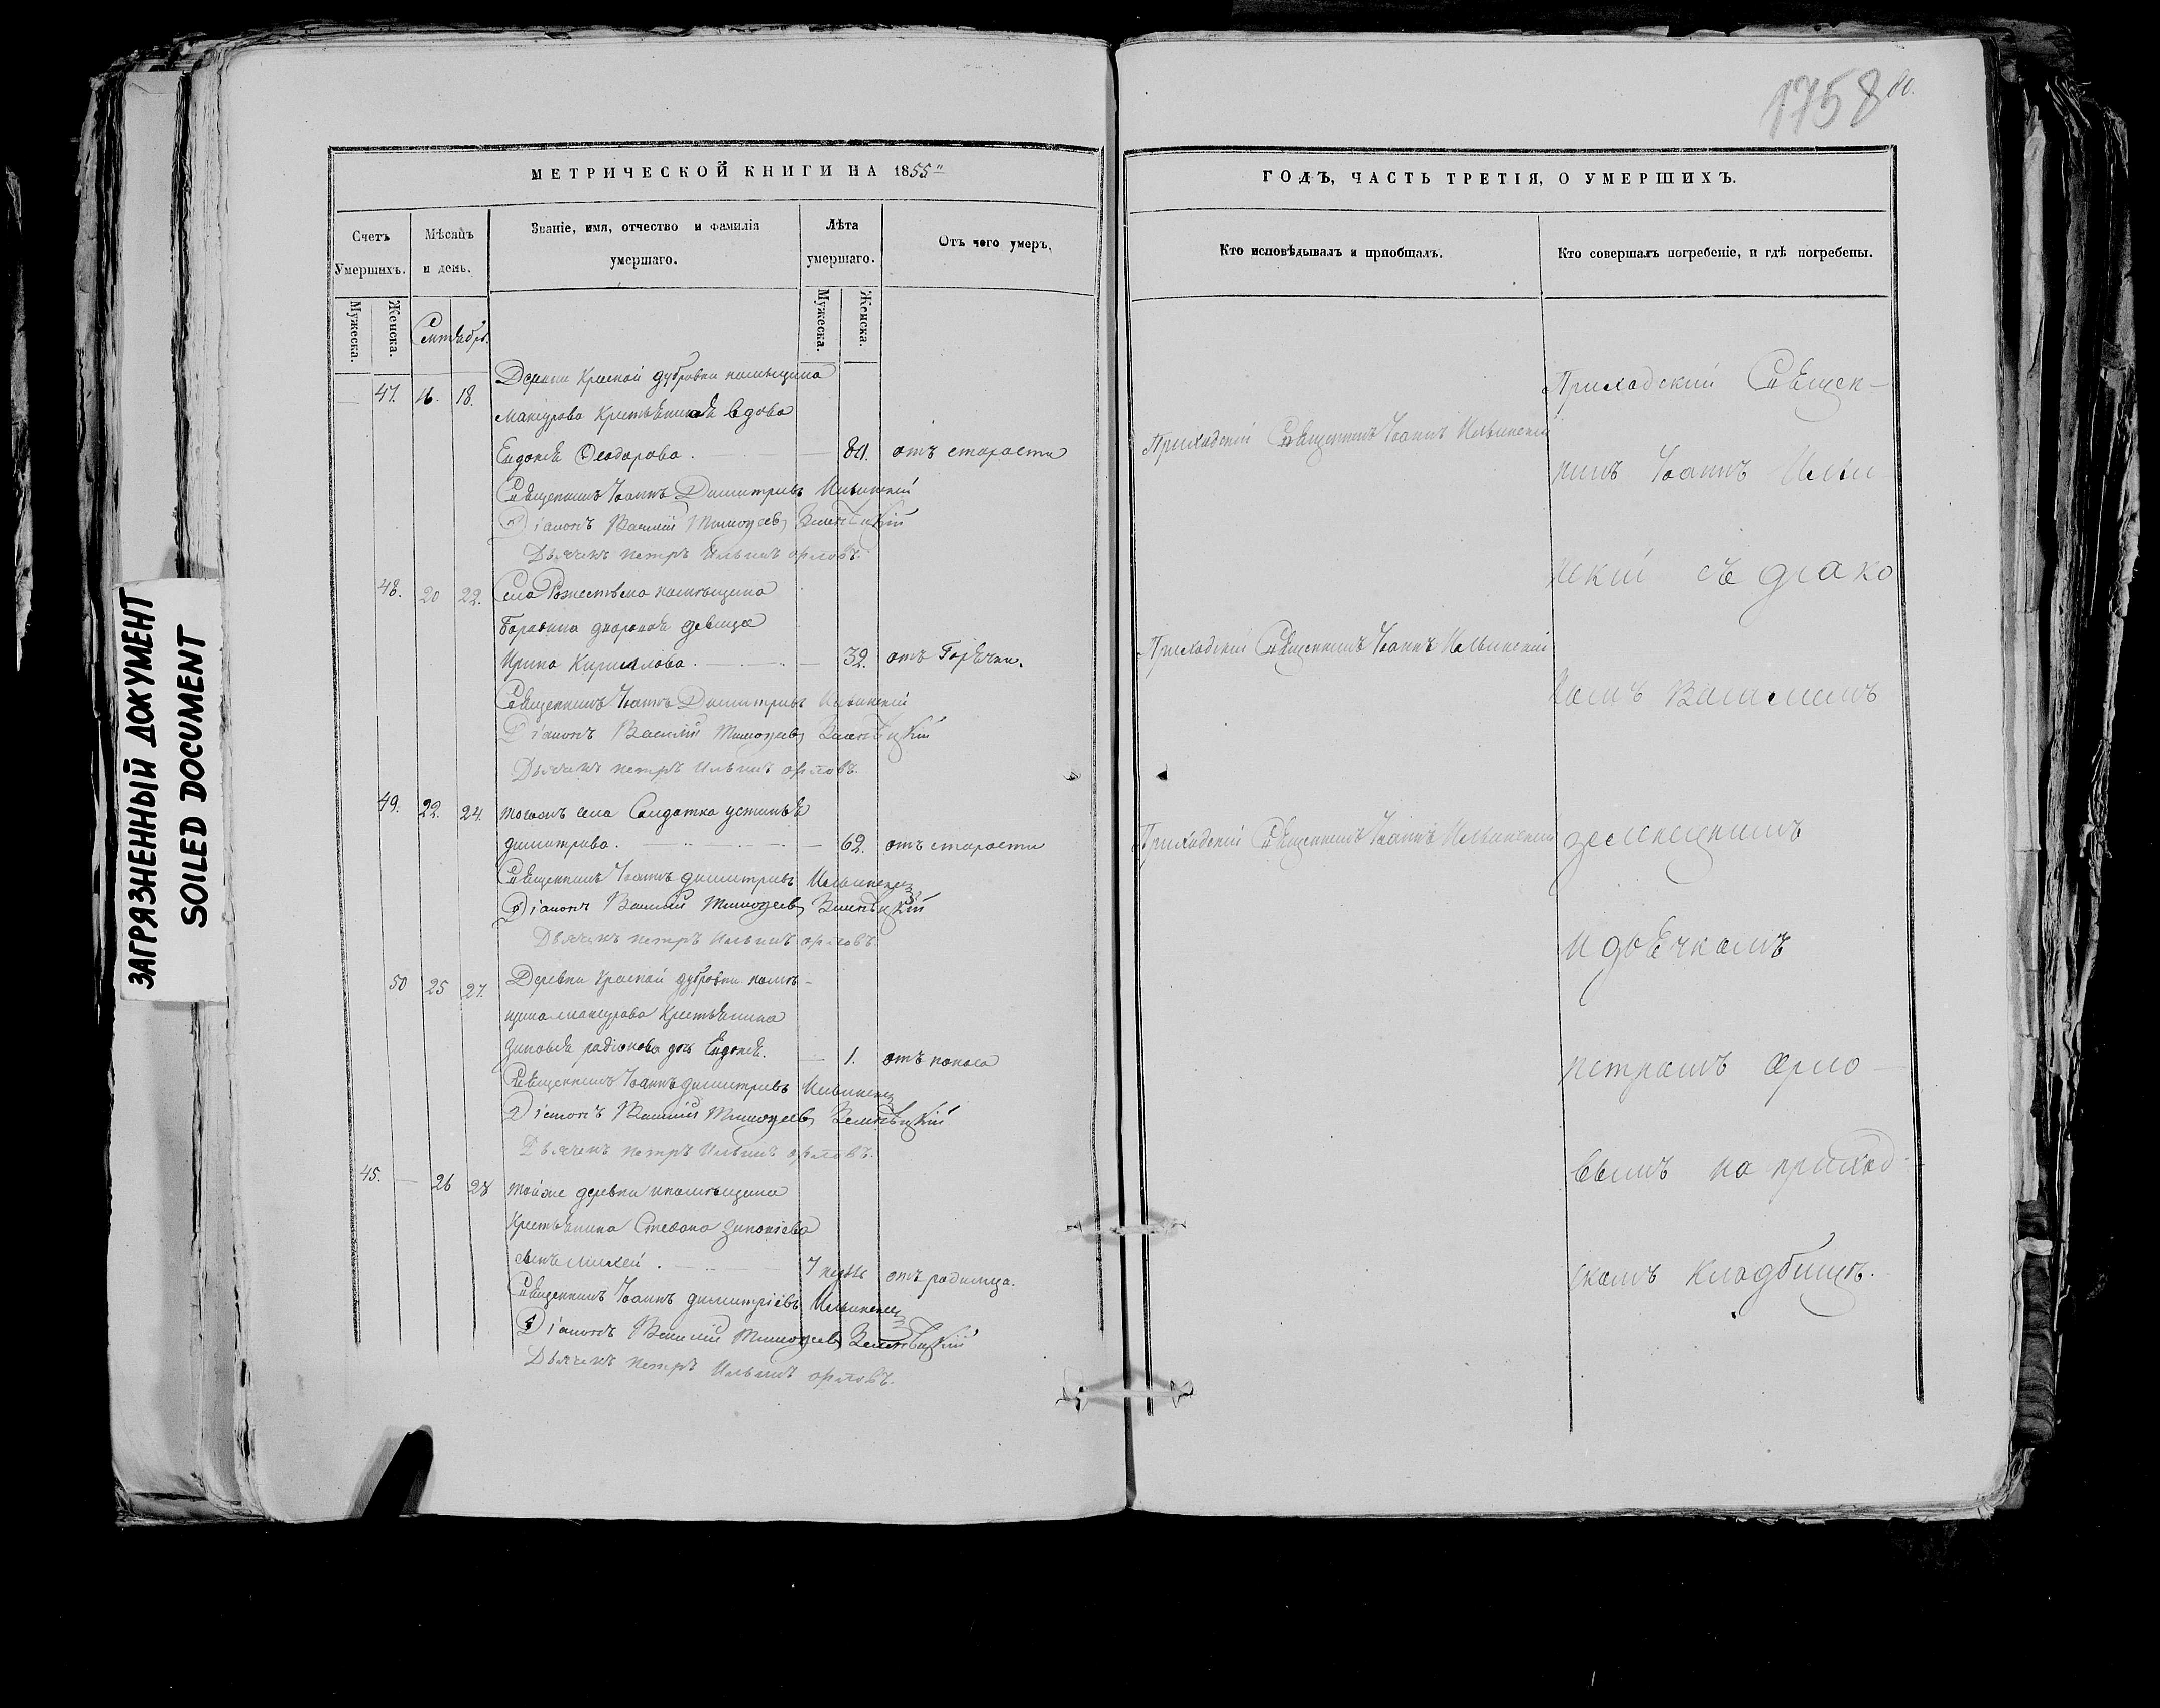 1758
80.
МЕТРИЧЕСКОЙ КНИГИ НА 1855
Счетъ Умершихъ.
Мѣсяцъ и день.
Званіе, имя, отчество и фамилія умершаго.
Лѣта умершаго.
Отъ чего умеръ.
Мужеска.
Женска.
Сентябрь.
Мужеска.
Женска.
47. 16. 18. Деревни Красной дубровки помѣщика
Мансурова Крестьянская вдова
Евдокія Ѳеодорова. 80. отъ старости
Священникъ Іоаннъ Димитріевъ Ильинскій
Діаконъ Василій Тимоѳеевъ
Дьячекъ петръ Ильинъ орловъ.
48. 20 22. Села Рожествена помѣщика
дворовая девица
Ирина Кирилова. 32. отъ Горячки.
Священникъ Іоаннъ Димитріевъ Ильинскій
Діаконъ Василій Тимоѳеевъ
Дьячекъ петръ Ильинъ орловъ.
49. 22. 24. тогожъ села Солдатка устинья
димитрова. 62. отъ старости
Священникъ Іоаннъ димитріевъ Ильинскій
Діаконъ Василій Тимоѳеевъ
Дьячекъ петръ Ильинъ орловъ.
50 25 27. Деревни Красной дубровки помѣ-
щика мансурова Крестьянина
Зиновія радіонова дочь Евдокія. 1. отъ поноса
Священникъ Іоаннъ димитріевъ Ильинскій
Діаконъ Василій Тимоѳеевъ
Дьячекъ петръ Ильинъ орловъ.
45. 26 28 тойже деревни и помѣщика
Крестьянина Стефана Зиновіева
сынъ Михей. 7 недѣль отъ родимца.
Священникъ Іоаннъ димитріевъ Ильинскій
Діаконъ Василій Тимоѳеевъ
Дьячекъ петръ Ильинъ орловъ.
ГОДЪ, ЧАСТЬ ТРЕТІЯ, О УМЕРШИХЪ.
Кто исповѣдывалъ и пріобщалъ.
Кто совершалъ погребеніе, и гдѣ погребены.
Приходскій Священникъ Іоаннъ Ильинскій
Приходскій Священникъ Іоаннъ Ильинскій
Приходскій Священникъ Іоаннъ Ильинскій
Приходскій Священ-
никъ Іоаннъ Ильи
нскій съ діако
номъ Василіемъ
и дьячкомъ
петромъ орло-
вымъ на приход-
скомъ кладбищѣ.
ЗАГРЯЗНЕННЫЙ ДОКУМЕНТ
SOILED DOCUMENT